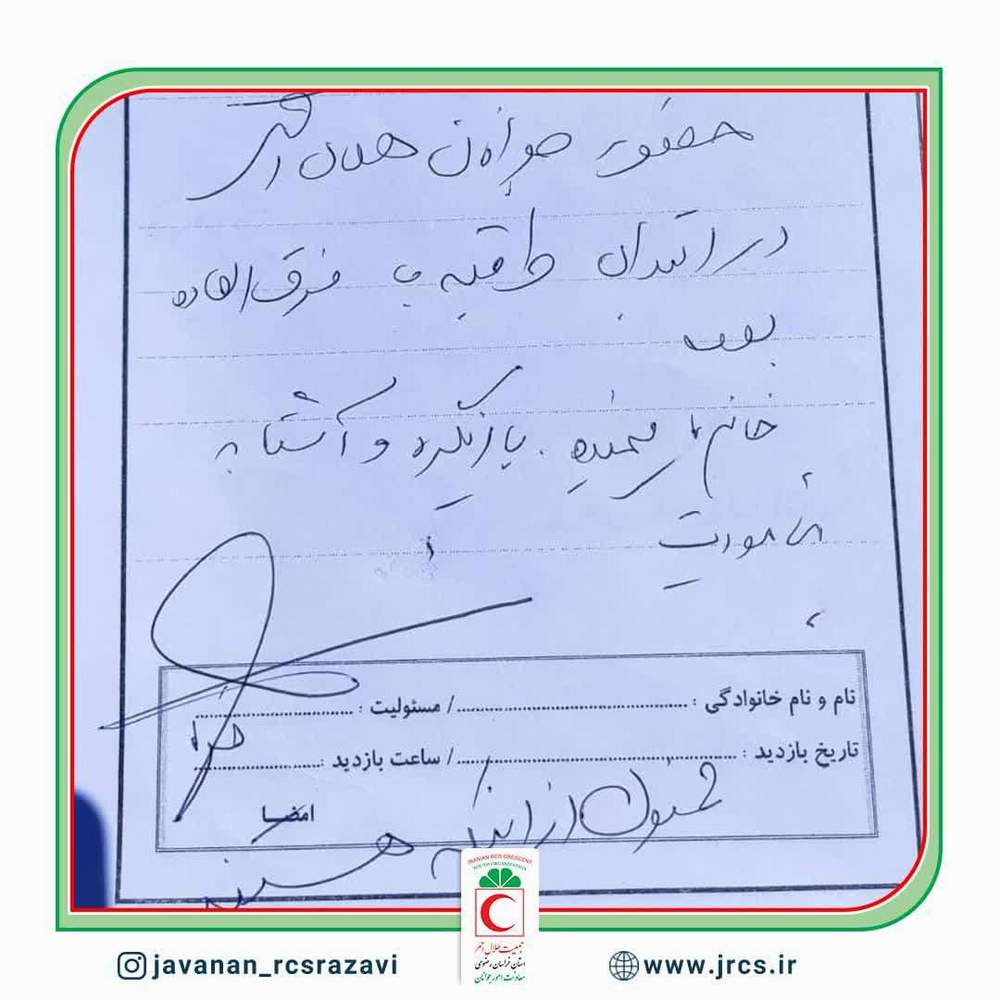 حضور جوانان هلال احمر
در ابتدای طاقیه ها فوق‌العاده
بود
خانم ها فهمیده . پای کار و آشنا به
ماموریت
نام و نام خانوادگی : / مسئولیت :
تاریخ بازدید : / ساعت بازدید :
امضا
ممنون از اینکه هستید
IRANIAN RED CRESCENT
YOUTH ORGANIZATION
جمعیت هلال احمر
استان خراسان رضوی
معاونت امور جوانان
javanan_rcsrazavi
www.jrcs.ir